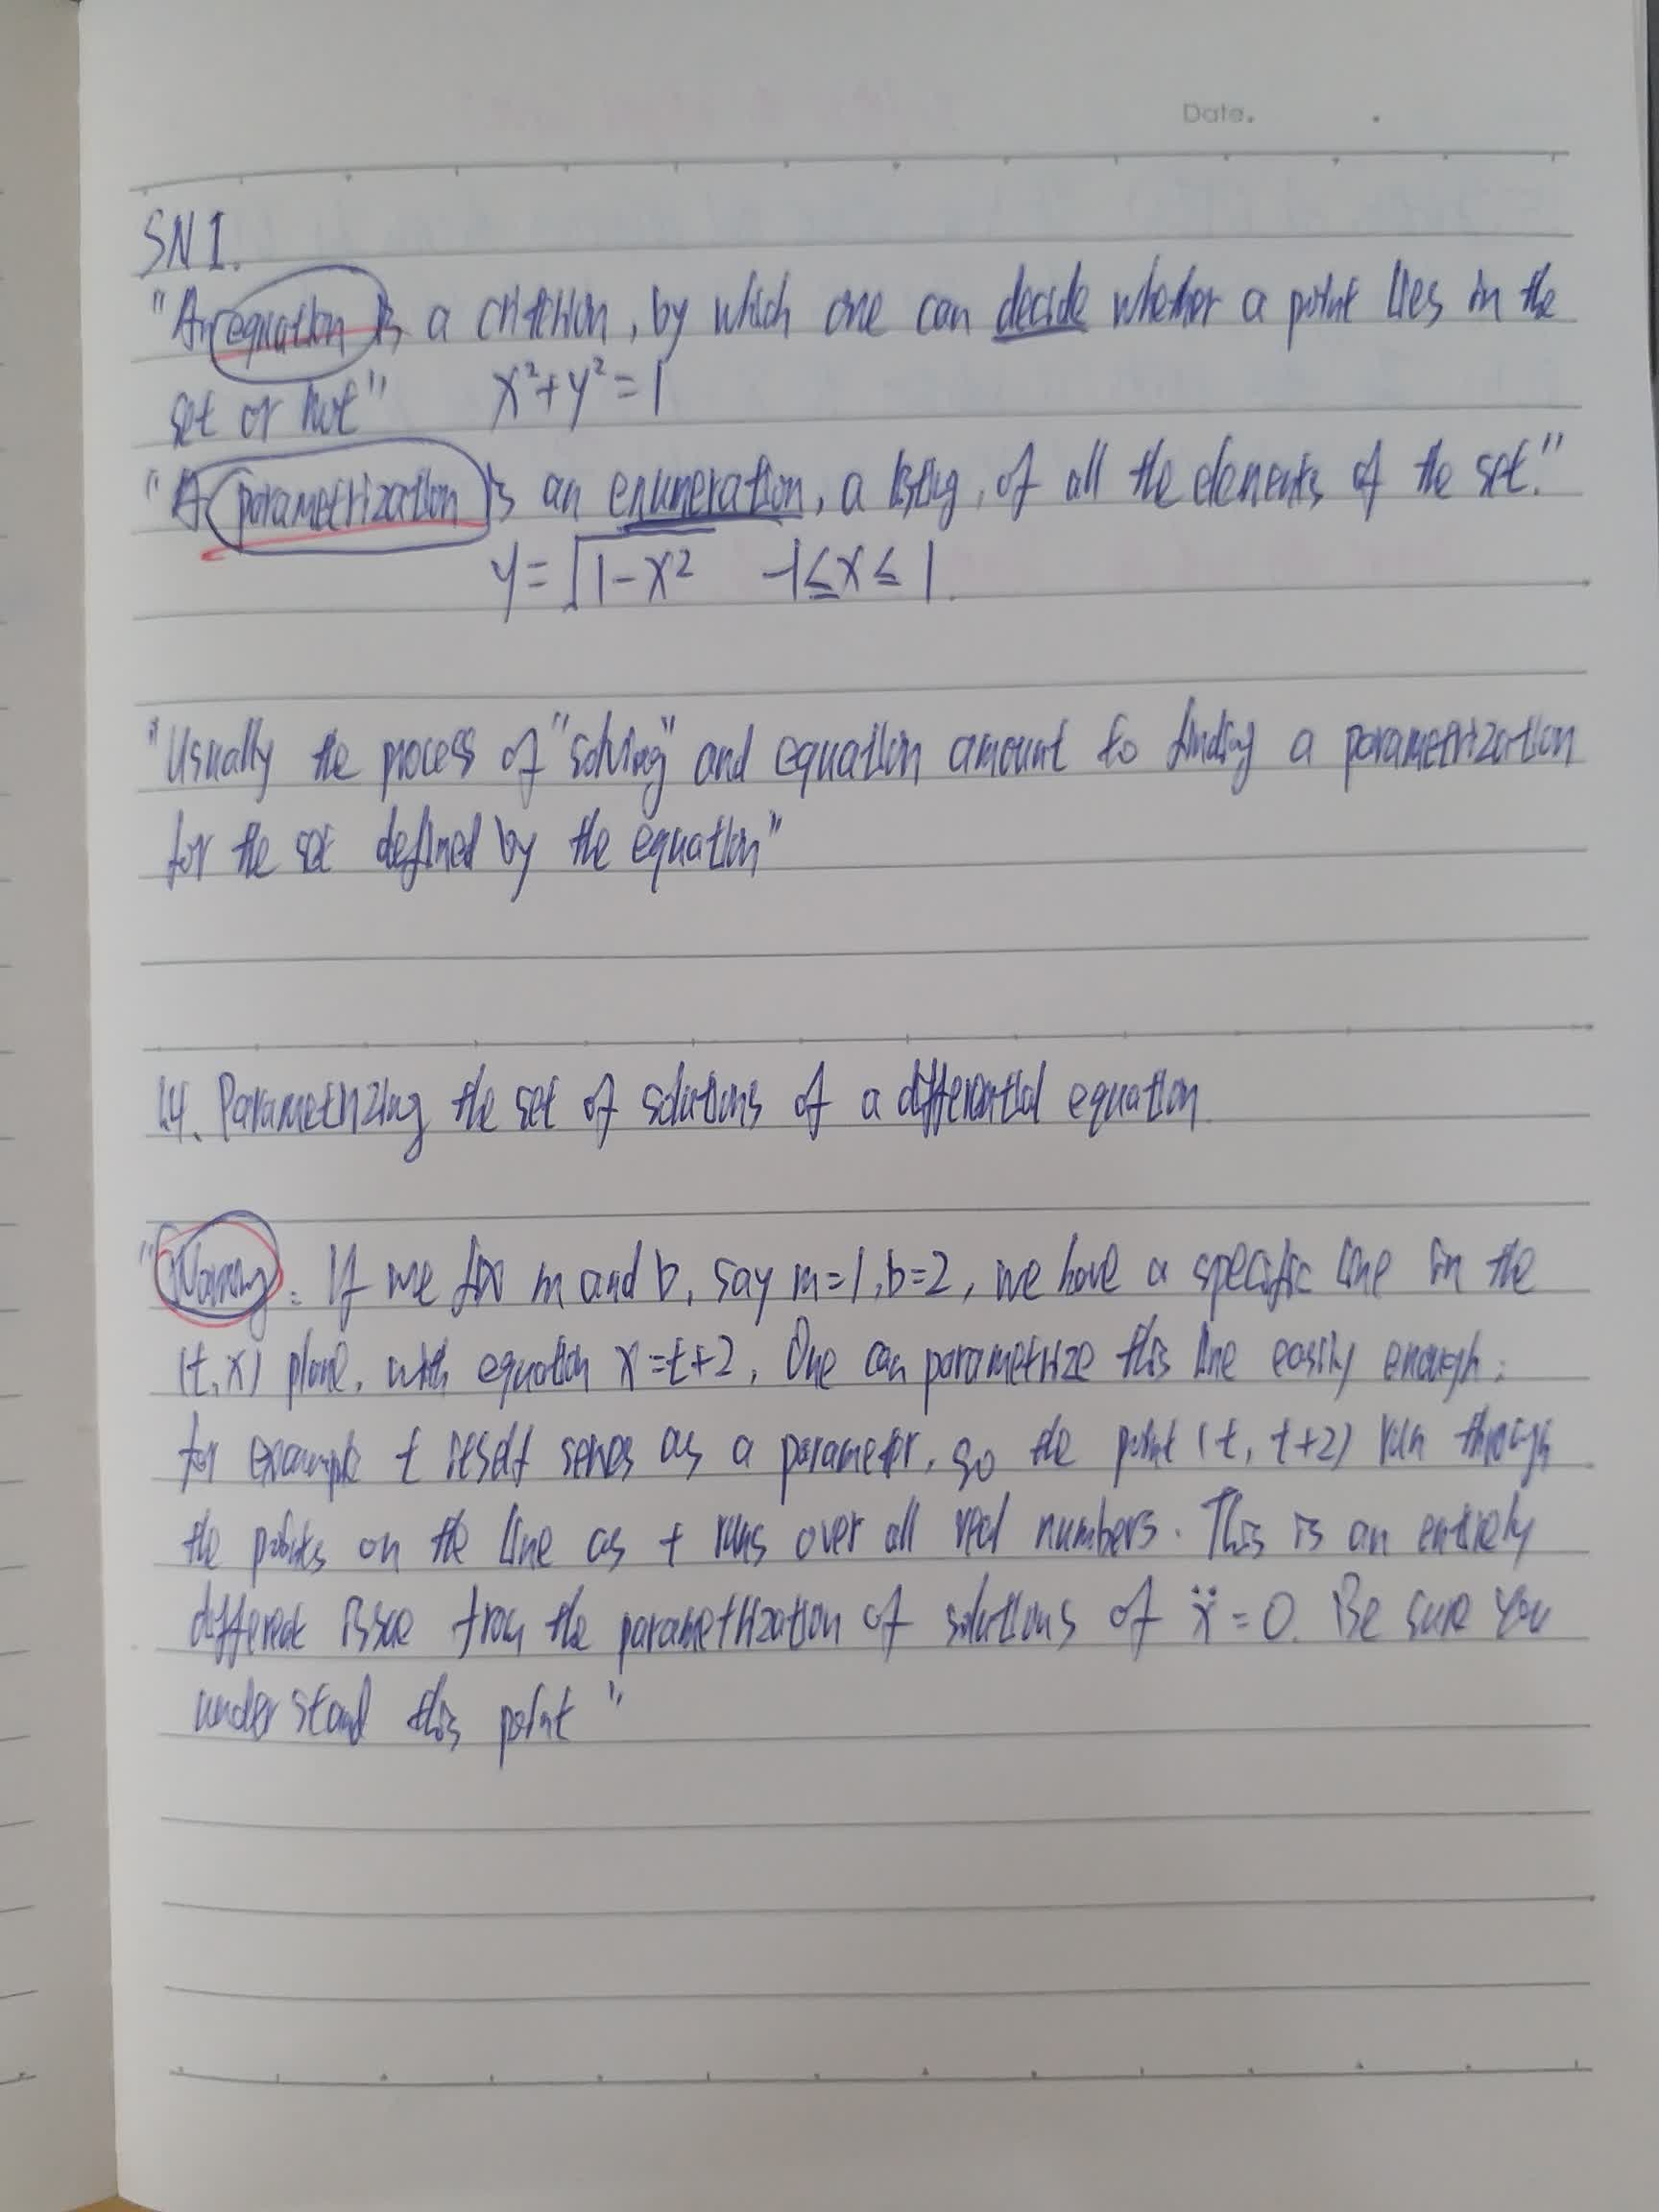 Date.
SN 1.
"An equation is a criterion, by which one can decide whether a point lies in the
set or not" x²+y²=1
"A parametrization is an enumeration, a listing, of all the elements of the set."
y=√1-x² -1≤x≤1.
"Usually the process of "solving" and equation amount to finding a parametrization
for the set defined by the equation"
1.4. Parametrizing the set of solutions of a differential equation
"Warning: If we fix m and b, say m=1, b=2, we have a specific line in the
(t,x) plane, with equation x=t+2. One can parametrize this line easily enough:
for example t itself serves as a parameter, so the point (t, t+2) run through
the points on the line as t runs over all real numbers. This is an entirely
different issue from the parametrization of solutions of ẍ=0. Be sure you
understand this point"